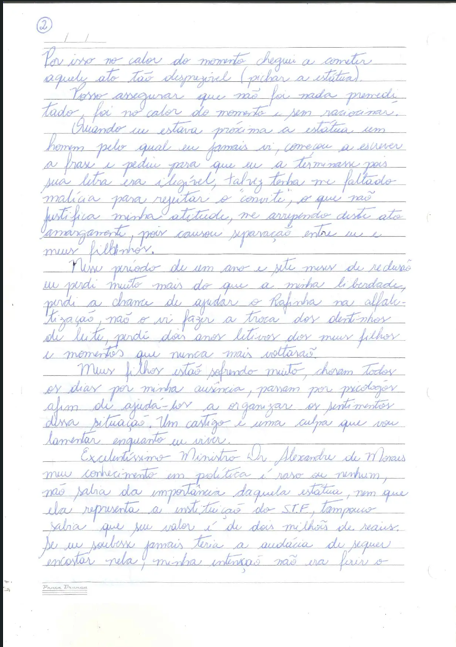 2
/ /
Por isso no calor do momento cheguei a cometer
aquele ato tão desprezível (pichar a estátua).
Posso assegurar que não foi nada premedi
tado, foi no calor do momento e sem raciocinar.
Quando eu estava próxima a estátua um
homem pelo qual eu jamais vi, começou a escrever
a frase e pediu para que eu a terminasse pois
sua letra era ilegível, talvez tenha me faltado
malícia para rejeitar o "convite", o que não
justifica minha atitude, me arrependo deste ato
amargamente, pois causou separação entre eu e
meus filhinhos.
Nesse período de um ano e sete meses de reclusão
eu perdi muito mais do que a minha liberdade,
perdi a chance de ajudar o Rafinha na alfabe-
tização, não o vi fazer a troca dos dentinhos
de leite, perdi dois anos letivos dos meus filhos
e momentos que nunca mais voltarão.
Meus filhos estão sofrendo muito, choram todos
os dias por minha ausência, passam por psicológos
afim de ajudá-los a organizar os sentimentos
dessa situação. Um castigo e uma culpa que vou
lamentar enquanto eu viver.
Excelentíssimo Ministro Dr. Alexandre de Morais
meu conhecimento em política é raso ou nenhum,
não sabia da importância daquela estátua, nem que
ela representa a instituição do STF, tampouco
sabia que seu valor é de dois milhões de reais.
Se eu soubesse jamais teria a audácia de sequer
encostar nela, minha intenção não era ferir o